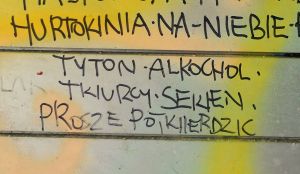 HURTOKINIA·NA-NIEBIE
TYTON·ALKOCHOL·
TKIURCY·SEKIEN.
PROSZE POTKIERDZIC